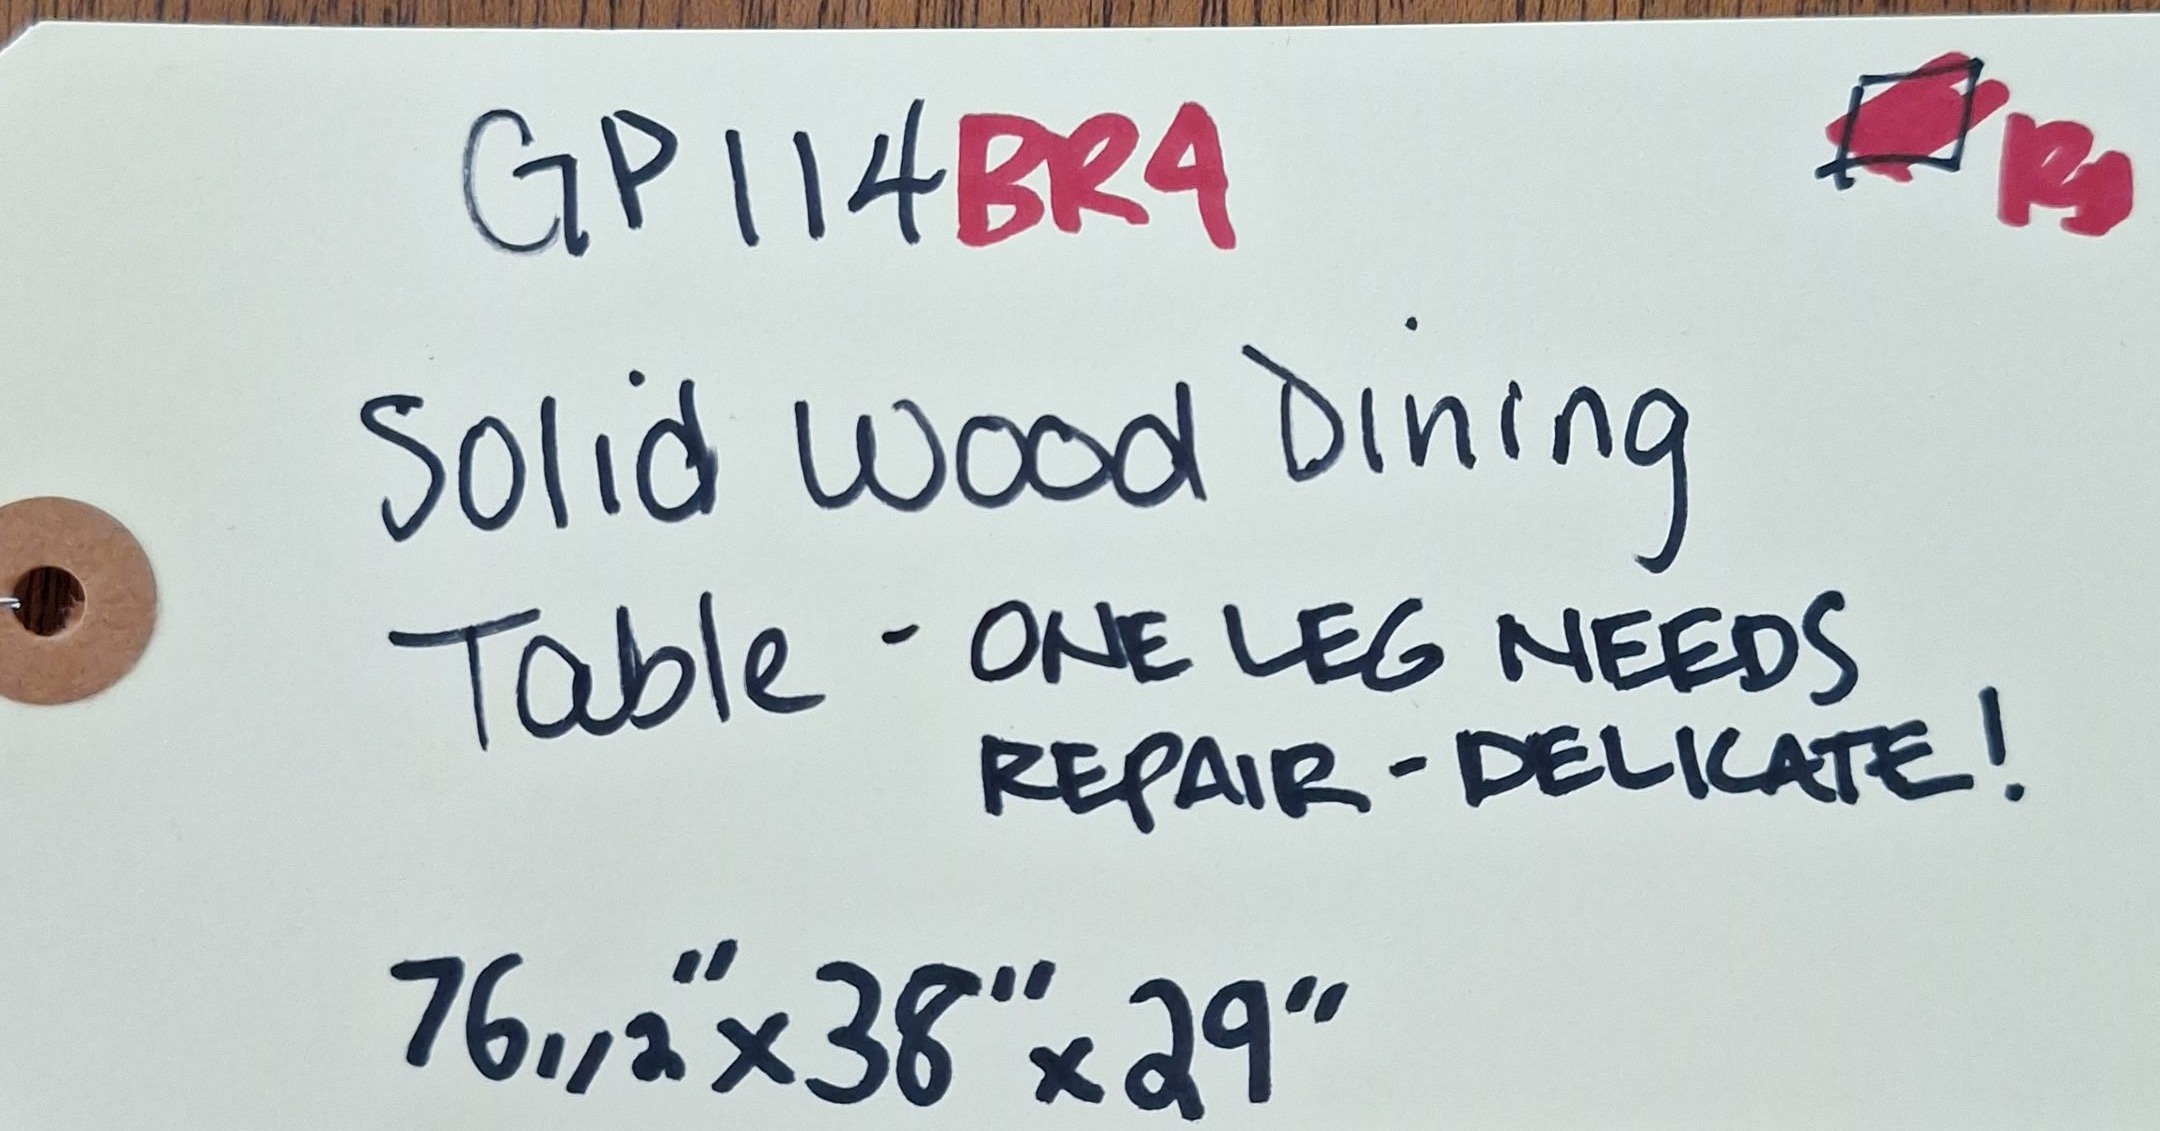 GP114BR4
Solid Wood Dining
Table - ONE LEG NEEDS
REPAIR - DELICATE!
76 1/2" x 38" x 29"